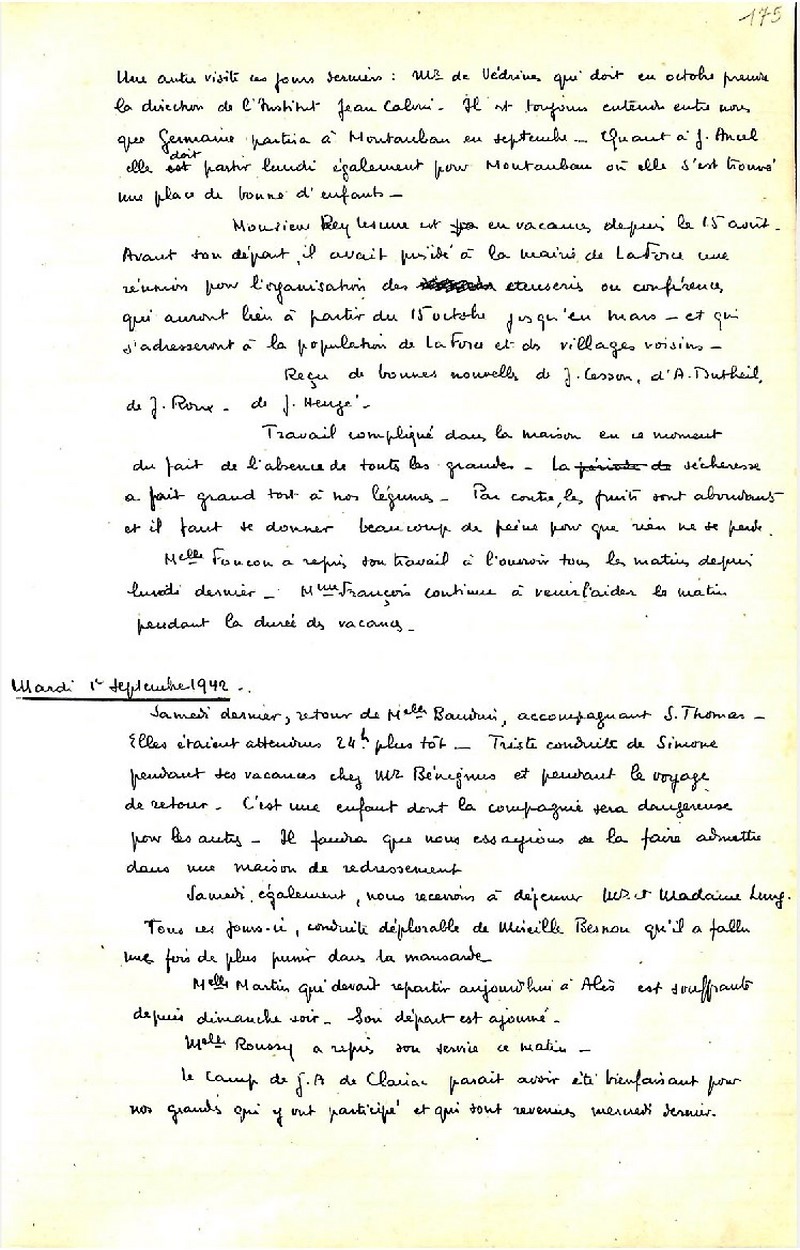 175
Une autre visite ces jours derniers : Mr de Védrines qui doit en octobre prendre
la direction de l'Institut Jean Calvin. Il est toujours entendu entre nous
que Germaine partira à Montauban en septembre _ Quant à J. Ancel
elle est doit partir lundi également pour Montauban où elle s'est trouvé
une place de bonne d'enfants _
Monsieur Rey Lescure est en vacances depuis le 15 août.
Avant son départ, il avait présidé à la mairie de La Force une
réunion pour l'organisation des causeries ou conférences
qui auront lieu à partir du 15 octobre jusqu'en mars _ et qui
s'adresseront à la population de La Force et des villages voisins _
Reçu de bonnes nouvelles de J. Cesson, d'A. Dutheil,
de J. Roux _ de J. Hengé _
Travail compliqué dans la maison en ce moment
du fait de l'absence de toutes les grandes _ La période de sécheresse
a fait grand tort à nos légumes _ Par contre, les fruits sont abondants
et il faut se donner beaucoup de peine pour que rien ne se perde.
Melle Faucon a repris son travail à l'ouvroir tous les matins depuis
lundi dernier _ Mme François continue à venir l'aider le matin
pendant la durée des vacances _
Mardi 1er septembre 1942 _.
Samedi dernier, retour de Melle Baudin, accompagnant S. Thomas _
Elles étaient attendues 24h plus tôt _ Triste conduite de Simone
pendant ses vacances chez Mr Bénignus et pendant le voyage
de retour _ C'est une enfant dont la compagnie sera dangereuse
pour les autres _ Il faudra que nous essayions de la faire admettre
dans une maison de redressement
Samedi également, nous recevons à déjeuner Mr et Madame Lung.
Tous ces jours-ci, conduite déplorable de Mireille Besnou qu'il a fallu
une fois de plus punir dans la mansarde
Melle Martin qui devait repartir aujourd'hui à Alès est souffrante
depuis dimanche soir _ Son départ est ajourné _
Melle Roussy a repris son service ce matin _
Le Camp de J.A de Clairac parait avoir été bienfaisant pour
nos grandes qui y ont participé et qui sont revenues mercredi dernier.